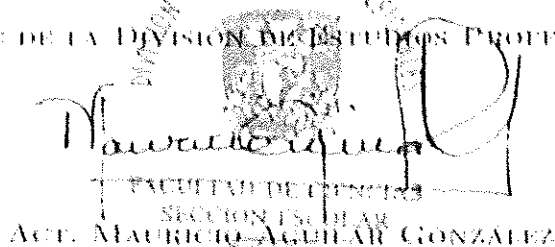 DE LA DIVISIÓN DE ESTUDIOS PROFE
FACULTAD DE CIENCIAS
SECCION ESCOLAR
ACT. MAURICIO AGUILAR GONZÁLEZ